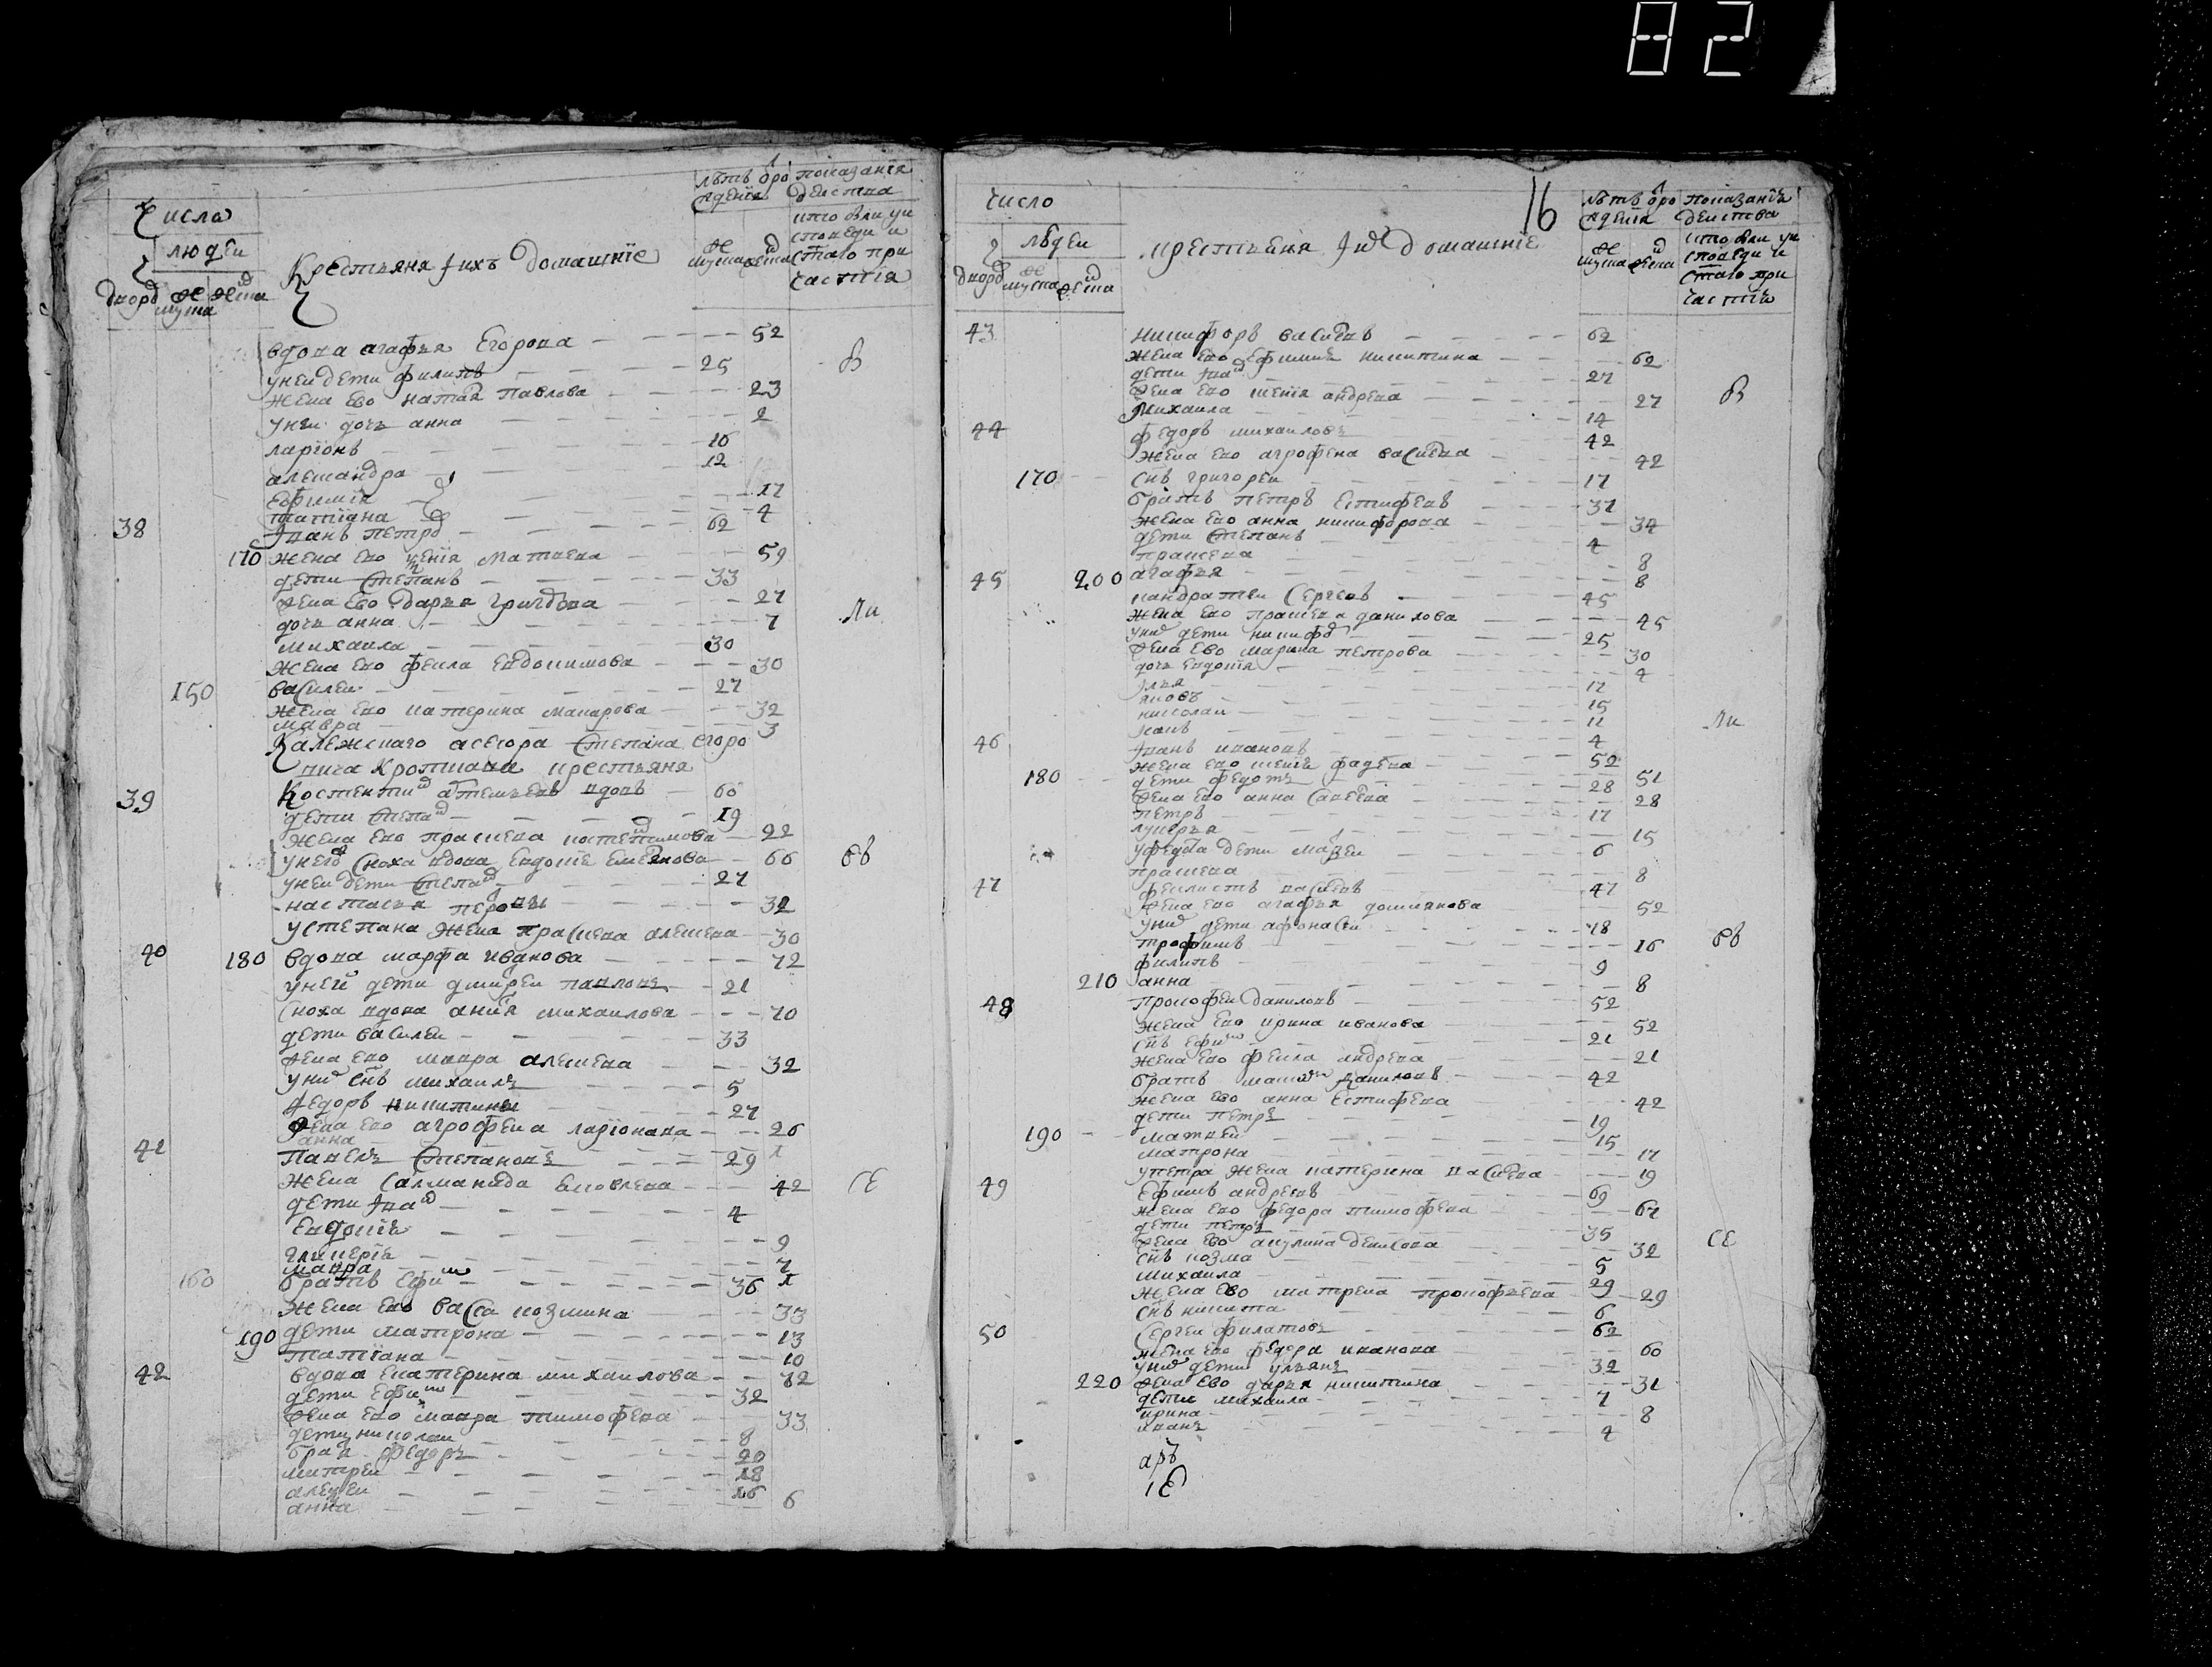 82
Числа
людей
дворо
мужа
жена
Крестьяня и ихъ домашние
лѣтъ оро
ждения
мужа
жена
показания
действа
кто были у и
споведи и
с:таго при
частия
вдова агафья Егорова 52
у неи дети филипъ 25 В
жена ево наталя павлова 23
у них дочь анна 2
ларионъ 16
алеѯандра 12
Ефимия 17
татиана 4
38 Иванъ петро 62
170 жена ево матвева 59
дети Степанъ 33
жена ево дарья григорева 27
дочь анна 7 ли
михаила 30
жена ево фекла евдокимова 30
150 василеи 27
жена ево катерина макарова 32
мавра 3
Калежскаго асесора Степана егоро
вича крестьяня
39 вдовъ 60
дети Степа 19
жена ево прасковя 22
у него сноха вдова Евдокия Емелянова 66 бв
у неи дети Степа 27
настасья 32
у степана жена праскева алексева 30
40 180 вдова марфа иванова 72
у неи дети дмитреи павловъ 21
сноха вдова михаилова 70
дети василеи 33
жена ево мавра алексева 32
у них снъ михаилъ 5
федоръ никитинъ 27
жена ево агрофена ларионава 26
анна 1
41 павелъ Степановъ 29
жена Саламанида яковлева 42 СЕ
дети Ива 4
Евдокия 9
гликерия 7
мавра 1
160 братъ Ефи 36
жена ево васа козмина 33
190 дети матрона 13
татиана 10
42 вдова екатерина михаилова 72
дети Ефи 32
жена ево мавра тимофева 33
дети николаи 8
бра федоръ 20
митреи 18
алеѯеи 16
анна 6
число
людеи
дворо
мужа
жена
крестьяня и их домашние
16
лѣтъ оро
ждения
мужа
жена
показания
действа
кто были у и
споведи и
с:таго при
частия
43 никифоръ васиевъ 62
жена ево Ефимия никитина 62
дети Ива 27
жена ево андрева 27 В
михаила 14
44 федоръ михаиловъ 42
жена ево агрофена васиева 42
170 снъ григореи 17
братъ петръ Естифевъ 37
жена ево анна никифорова 34
дети Степанъ 4
праскева 8
200 агафья 8
45 кандратеи Сергеевъ 45
жена ево праскева данилова 45
у них дети никифо 25
жена ево марина петрова 30
дочь евдокия 4
илья 17
яковъ 15
николаи 11 ли
4
46 Иванъ ивановъ 52
жена ево фадева 51
180 дети федотъ 28
жена ево анна 28
петръ 17
лукерья 15
у федота дети 6
праскева 8
47 феклистъ васиевъ 47
жена ево агафья 52
у них дети афонасеи 18
трофимъ 16 бв
филипъ 9
210 анна 8
48 прокофеи даниловъ 52
жена ево ирина иванова 52
снъ Ефи 21
жена ево фекла андрева 21
братъ даниловъ 42
жена ево анна Естифева 42
дети петръ 19
190 матвеи 15
матрона 17
у петра жена катерина васиева 19
49 Ефимъ андревъ 69
жена ево федора тимофева 67
дети петръ 35
жена ево акулина денисова 32 СЕ
снъ козма 5
михаила 29
жена ево матрена прокофьева 29
снъ никита 6
50 Сергеи филатовъ 62
жена ево федора иванова 60
у них дети ульянъ 32
220 жена ево дарья никитина 31
дети михаила 7
ирина 8
иванъ 4